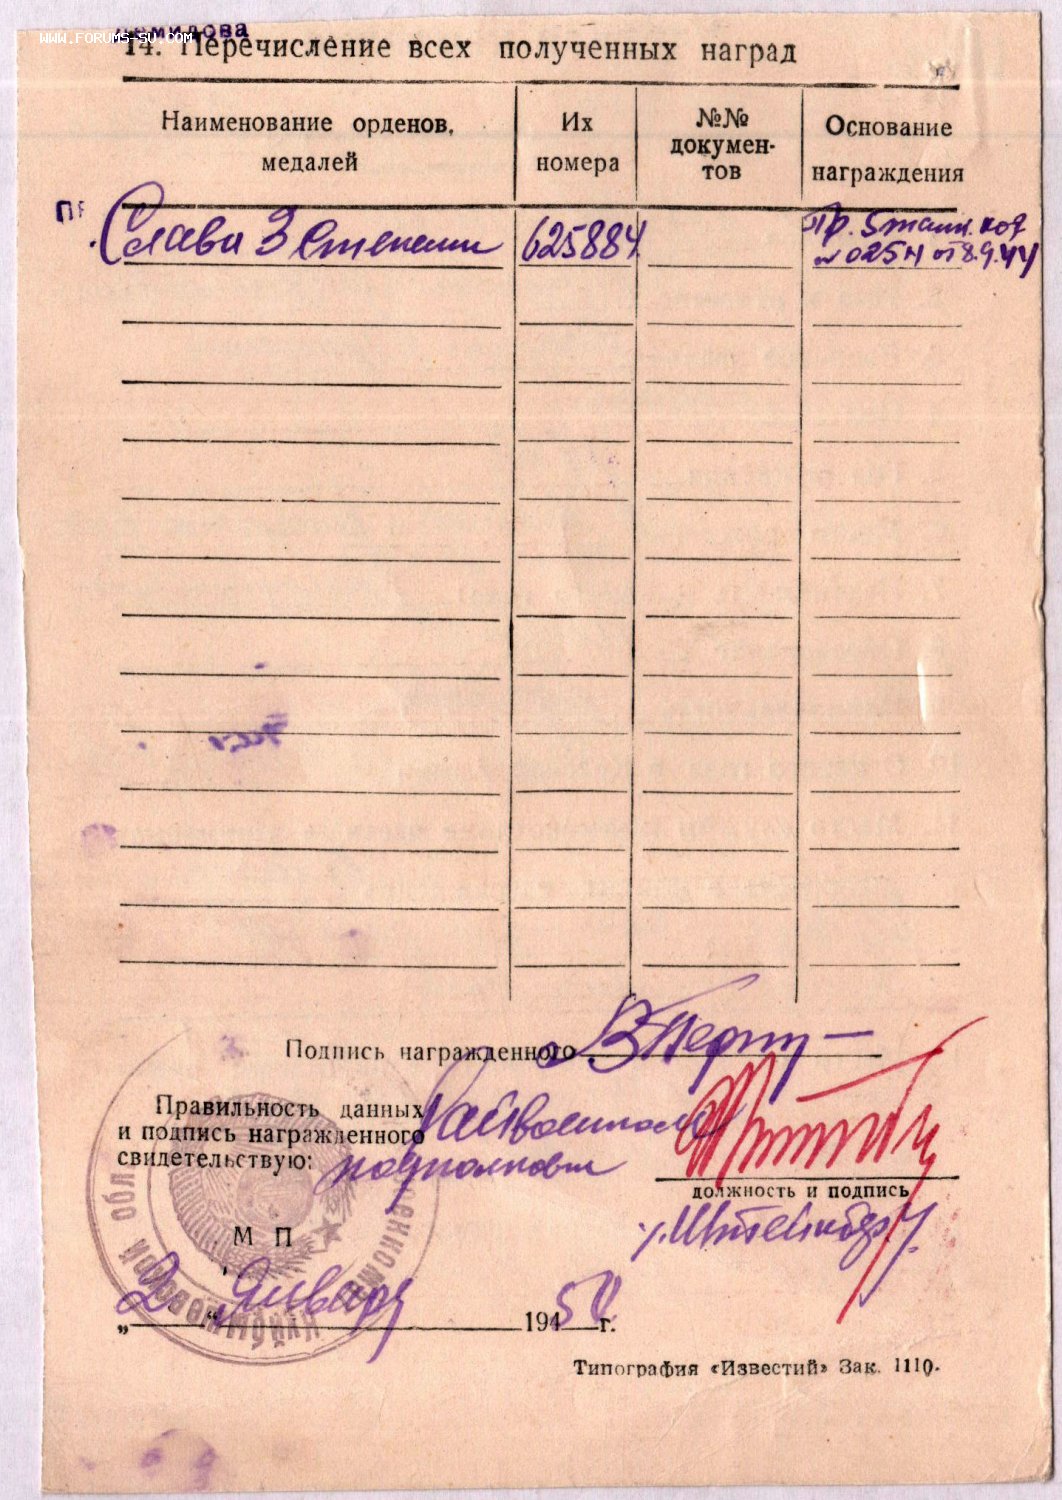 WWW.FORUMS-SU.COM
14. Перечисление всех полученных наград
Наименование орденов, медалей
Их номера
№№ докумен-тов
Основание награждения
Слава 3 степени 625884 Пр. 5 танк. кор
№ 025н от 8.9.44
Подпись награжденного
Правильность данных
и подпись награжденного
свидетельствую:
Райвоенком
подполковн
должность и подпись
М П
2 Января 1950 г.
Типография «Известий» Зак. 1110.